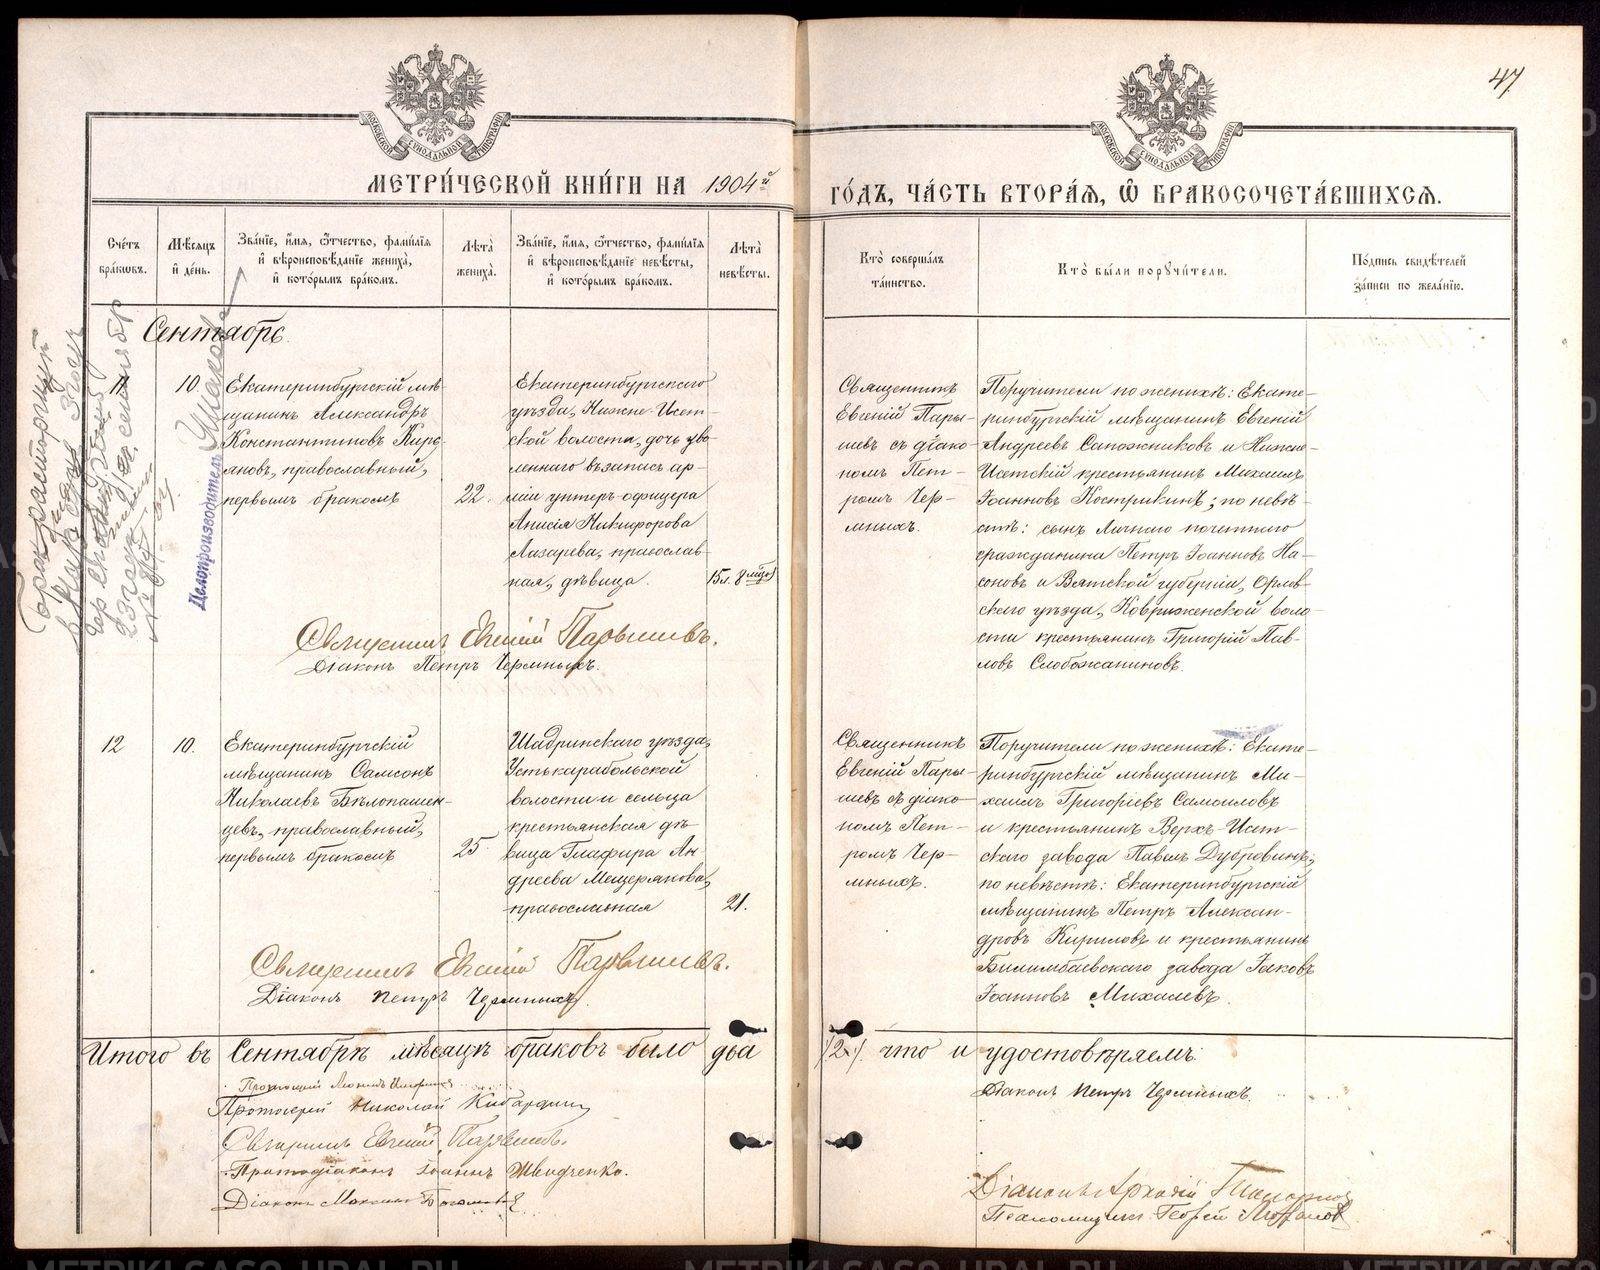 47
МОСКОВСКОЙ СѴНОДАЛЬНОЙ ТИПОГРАФІИ
МОСКОВСКОЙ СѴНОДАЛЬНОЙ ТИПОГРАФІИ
МЕТРИ́ЧЕСКОЙ КНИ́ГИ НА 1904й
ГО́ДЪ, ЧА́СТЬ ВТОРА́Ѧ, Ѡ҆ БРАКОСОЧЕТА́ВШИХСѦ.
Сче́тъ бра́кѡвъ.
Мѣ́сѧцъ и҆ де́нь.
Зва́нїе, и҆́мѧ, ѻ҆́тчество, фамѝлїѧ и҆ вѣроисповѣ́данїе жениха̀, и҆ кото́рымъ бра́комъ.
Лѣ́та жениха̀.
Зва́нїе, и҆́мѧ, ѻ҆́тчество, фамѝлїѧ и҆ вѣроисповѣ́данїе невѣ́сты, и҆ кото́рымъ бра́комъ.
Лѣ́та невѣ́сты.
Кто̀ соверша́лъ та́инство.
Кто̀ бы́ли порꙋчи́тели.
По́дпись свидѣ́телей за́писи по жела́нїю.
Сентябрь.
Бракъ расторгнутъ
Делопроизводитель
11
10
Екатеринбургскій мѣ-
щанинъ Александръ
Константиновъ Кирь-
яновъ, православный,
первымъ бракомъ
22.
Екатеринбургскаго
уѣзда, Нижне-Исет-
ской волости, дочь уво-
леннаго въ запасъ ар-
міи унтеръ-офицера
Анисія Никифорова
Лазарева, православ-
ная, дѣвица.
15 л. 8 мѣс.
Священникъ
Евгеній Пары-
шевъ съ діако-
номъ Пет-
ромъ Чер-
мныхъ.
Поручители по женихѣ: Екате-
ринбургскій мѣщанинъ Евгеній
Андреевъ Сапожниковъ и Нижне-
Исетскій крестьянинъ Михаилъ
Іоанновъ Кострикинъ; по невѣ-
стѣ: сынъ Личнаго почетнаго
гражданина Петръ Іоанновъ На-
соновъ и Вятской губерніи, Орлов-
скаго уѣзда, Ковриженской воло-
сти крестьянинъ Григорій Пав-
ловъ Слобожаниновъ.
Священникъ Евгеній Парышевъ.
Діаконъ Петръ Чермныхъ.
12
10.
Екатеринбургскій
мѣщанинъ Самсонъ
Николаевъ Бѣлопашен-
цевъ, православный,
первымъ бракомъ
25
Шадринскаго уѣзда,
Устькарабольской
волости и сельца
крестьянская дѣ-
вица Глафира Ан-
дреева Мещерякова,
православная
21.
Священникъ
Евгеній Пары-
шевъ съ діако-
номъ Пет-
ромъ Чер-
мныхъ.
Поручители по женихѣ: Екате-
ринбургскій мѣщанинъ Ми-
хаилъ Григоріевъ Самоиловъ
и крестьянинъ Верхъ-Исет-
скаго завода Павелъ Дубровинъ;
по невѣстѣ: Екатеринбургскій
мѣщанинъ Петръ Алексан-
дровъ Кириловъ и крестьянинъ
Билимбаевскаго завода Іаковъ
Іоанновъ Михалевъ.
Священникъ Евгеній Парышевъ.
Діаконъ Петръ Чермныхъ.
Итого въ Сентябрѣ мѣсяцѣ браковъ было два /2х/. что и удостовѣряемъ.
Протоіерей Николай Кибардинъ
Священникъ Евгеній Парышевъ.
Протодіаконъ Іоаннъ Швидченко.
Діаконъ
Діаконъ Петръ Чермныхъ.
Діаконъ Аркадій
Псаломщикъ Георгій